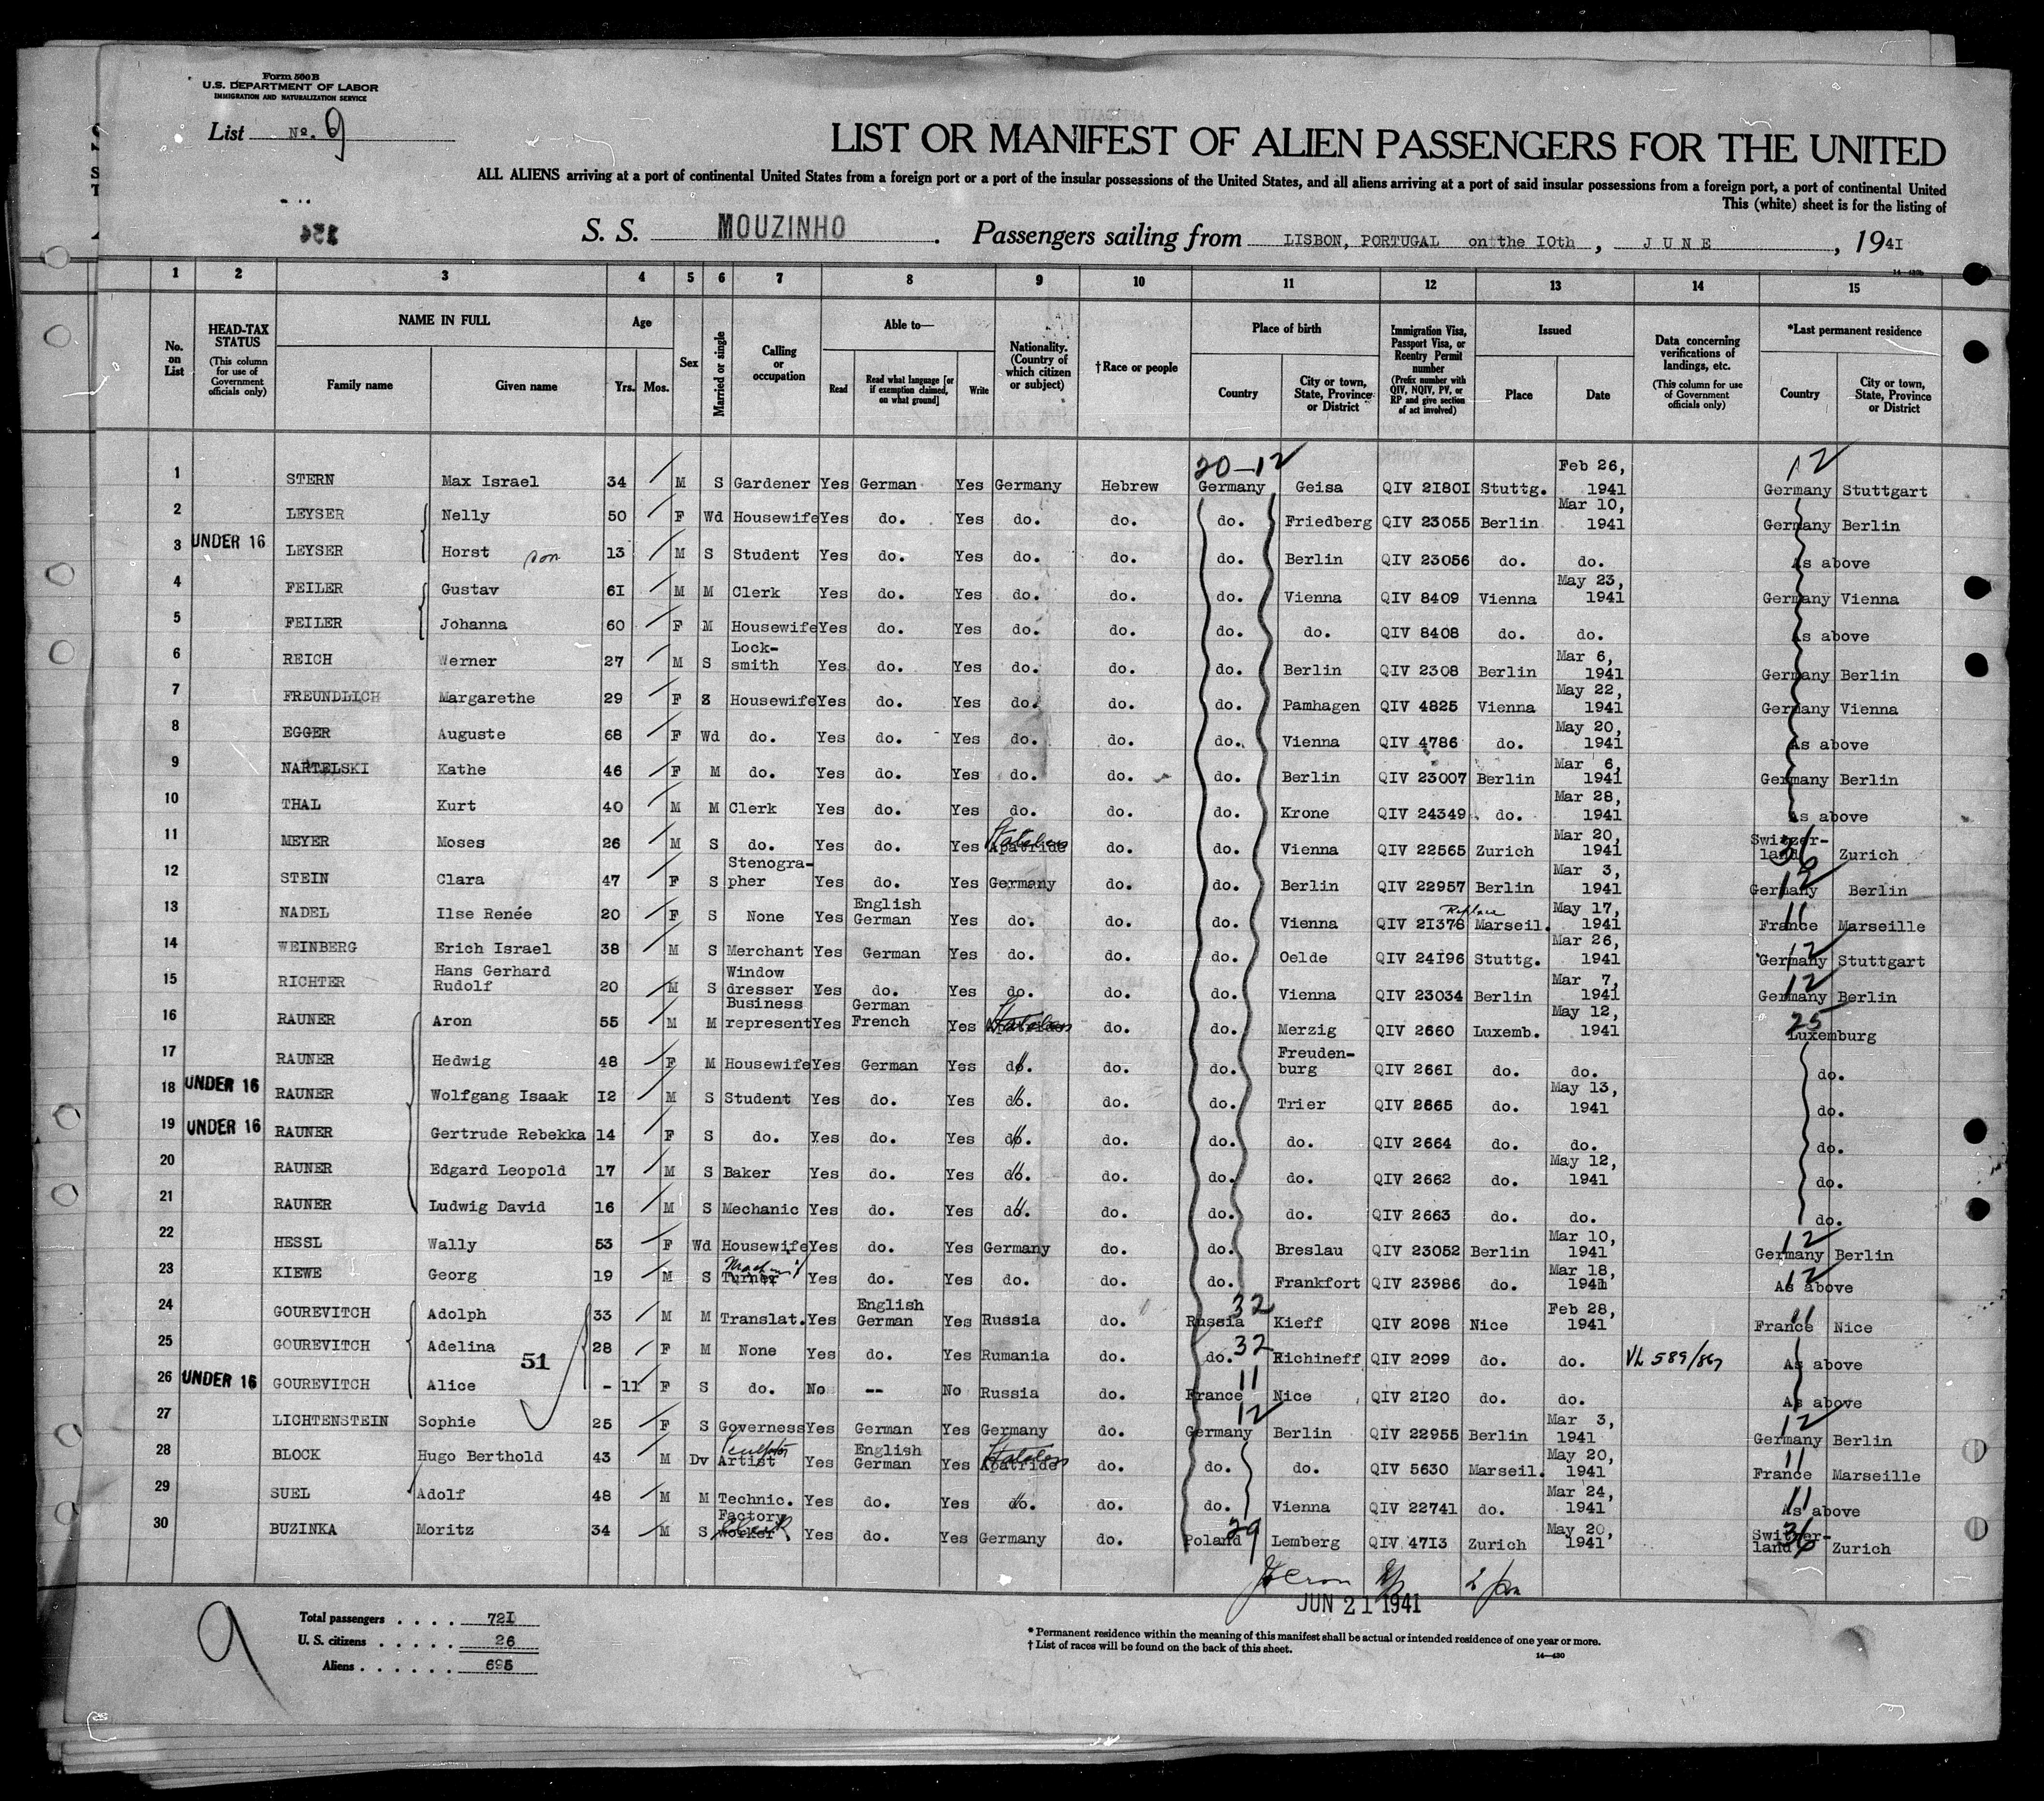 Form 500B
U.S. DEPARTMENT OF LABOR
IMMIGRATION AND NATURALIZATION SERVICE
List No. 9
LIST OR MANIFEST OF ALIEN PASSENGERS FOR THE UNITED
ALL ALIENS arriving at a port of continental United States from a foreign port or a port of the insular possessions of the United States, and all aliens arriving at a port of said insular possessions from a foreign port, a port of continental United
This (white) sheet is for the listing of
S. S. MOUZINHO. Passengers sailing from LISBON, PORTUGAL on the 10th, JUNE, 1941
1 2 3 4 5 6 7 8 9 10 11 12 13 14 15
No. on List
HEAD-TAX STATUS (This column for use of Government officials only)
NAME IN FULL
Family name
Given name
Age
Yrs. Mos.
Sex
Married or single
Calling or occupation
Able to—
Read
Read what language [or if exemption claimed, on what ground]
Write
Nationality. (Country of which citizen or subject)
†Race or people
Place of birth
Country
City or town, State, Province or District
Immigration Visa, Passport Visa, or Reentry Permit number (Prefix number with QIV, NQIV, PV, or RP and give section of act involved)
Issued
Place
Date
Data concerning verifications of landings, etc. (This column for use of Government officials only)
*Last permanent residence
Country
City or town, State, Province or District
20-12 12
1 STERN Max Israel 34 M S Gardener Yes German Yes Germany Hebrew Germany Geisa QIV 21801 Stuttg. Feb 26, 1941 Germany Stuttgart
2 LEYSER Nelly 50 F Wd Housewife Yes do. Yes do. do. do. Friedberg QIV 23055 Berlin Mar 10, 1941 Germany Berlin
3 UNDER 16 LEYSER Horst son 13 M S Student Yes do. Yes do. do. do. Berlin QIV 23056 do. do. As above
4 FEILER Gustav 61 M M Clerk Yes do. Yes do. do. do. Vienna QIV 8409 Vienna May 23, 1941 Germany Vienna
5 FEILER Johanna 60 F M Housewife Yes do. Yes do. do. do. do. QIV 8408 do. do. As above
6 REICH Werner 27 M S Lock-smith Yes do. Yes do. do. do. Berlin QIV 2308 Berlin Mar 6, 1941 Germany Berlin
7 FREUNDLICH Margarethe 29 F S Housewife Yes do. Yes do. do. do. Pamhagen QIV 4825 Vienna May 22, 1941 Germany Vienna
8 EGGER Auguste 68 F Wd do. Yes do. Yes do. do. do. Vienna QIV 4786 do. May 20, 1941 As above
9 NARTELSKI Kathe 46 F M do. Yes do. Yes do. do. do. Berlin QIV 23007 Berlin Mar 6, 1941 Germany Berlin
10 THAL Kurt 40 M M Clerk Yes do. Yes do. do. do. Krone QIV 24349 do. Mar 28, 1941 As above
11 MEYER Moses 26 M S do. Yes do. Yes Apatride Stateless do. do. Vienna QIV 22565 Zurich Mar 20, 1941 Switzer-land 36 Zurich
12 STEIN Clara 47 F S Stenogra-pher Yes do. Yes Germany do. do. Berlin QIV 22957 Berlin Mar 3, 1941 Germany 12 Berlin
13 NADEL Ilse Renée 20 F S None Yes English German Yes do. do. do. Vienna QIV 21378 Replace Marseil. May 17, 1941 France 11 Marseille
14 WEINBERG Erich Israel 38 M S Merchant Yes German Yes do. do. do. Oelde QIV 24196 Stuttg. Mar 26, 1941 Germany 12 Stuttgart
15 RICHTER Hans Gerhard Rudolf 20 M S Window dresser Yes do. Yes do. do. do. Vienna QIV 23034 Berlin Mar 7, 1941 Germany 12 Berlin
16 RAUNER Aron 55 M M Business represent Yes German French Yes Stateless do. do. Merzig QIV 2660 Luxemb. May 12, 1941 Luxemburg 25
17 RAUNER Hedwig 48 F M Housewife Yes German Yes do. do. do. Freuden-burg QIV 2661 do. do. do.
18 UNDER 16 RAUNER Wolfgang Isaak 12 M S Student Yes do. Yes do. do. do. Trier QIV 2665 do. May 13, 1941 do.
19 UNDER 16 RAUNER Gertrude Rebekka 14 F S do. Yes do. Yes do. do. do. do. QIV 2664 do. do. do.
20 RAUNER Edgard Leopold 17 M S Baker Yes do. Yes do. do. do. do. QIV 2662 do. May 12, 1941 do.
21 RAUNER Ludwig David 16 M S Mechanic Yes do. Yes do. do. do. do. QIV 2663 do. do. do.
22 HESSL Wally 53 F Wd Housewife Yes do. Yes Germany do. do. Breslau QIV 23052 Berlin Mar 10, 1941 Germany 12 Berlin
23 KIEWE Georg 19 M S Turner Yes do. Yes do. do. do. Frankfort QIV 23986 do. Mar 18, 1941 As above 12
24 GOUREVITCH Adolph 33 M M Translat. Yes English German Yes Russia do. Russia 32 Kieff QIV 2098 Nice Feb 28, 1941 France 11 Nice
25 GOUREVITCH Adelina 51 28 F M None Yes do. Yes Rumania do. do. 32 Kichineff QIV 2099 do. do. VL 589/867 As above
26 UNDER 16 GOUREVITCH Alice - 11 F S do. No -- No Russia do. France 11 Nice QIV 2120 do. do. As above
27 LICHTENSTEIN Sophie 25 F S Governess Yes German Yes Germany do. Germany 12 Berlin QIV 22955 Berlin Mar 3, 1941 Germany 12 Berlin
28 BLOCK Hugo Berthold 43 M Dv Artist Sculptor Yes English German Yes Apatride Stateless do. do. do. QIV 5630 Marseil. May 20, 1941 France 11 Marseille
29 SUEL Adolf 48 M M Technic. Yes do. Yes do. do. do. Vienna QIV 22741 do. Mar 24, 1941 As above 11
30 BUZINKA Moritz 34 M S Factory worker Yes do. Yes Germany do. Poland 29 Lemberg QIV 4713 Zurich May 20, 1941 Switzer-land 36 Zurich
JUN 21 1941
9
Total passengers .... 721
U. S. citizens ..... 26
Aliens ...... 695
*Permanent residence within the meaning of this manifest shall be actual or intended residence of one year or more.
†List of races will be found on the back of this sheet.
14—430